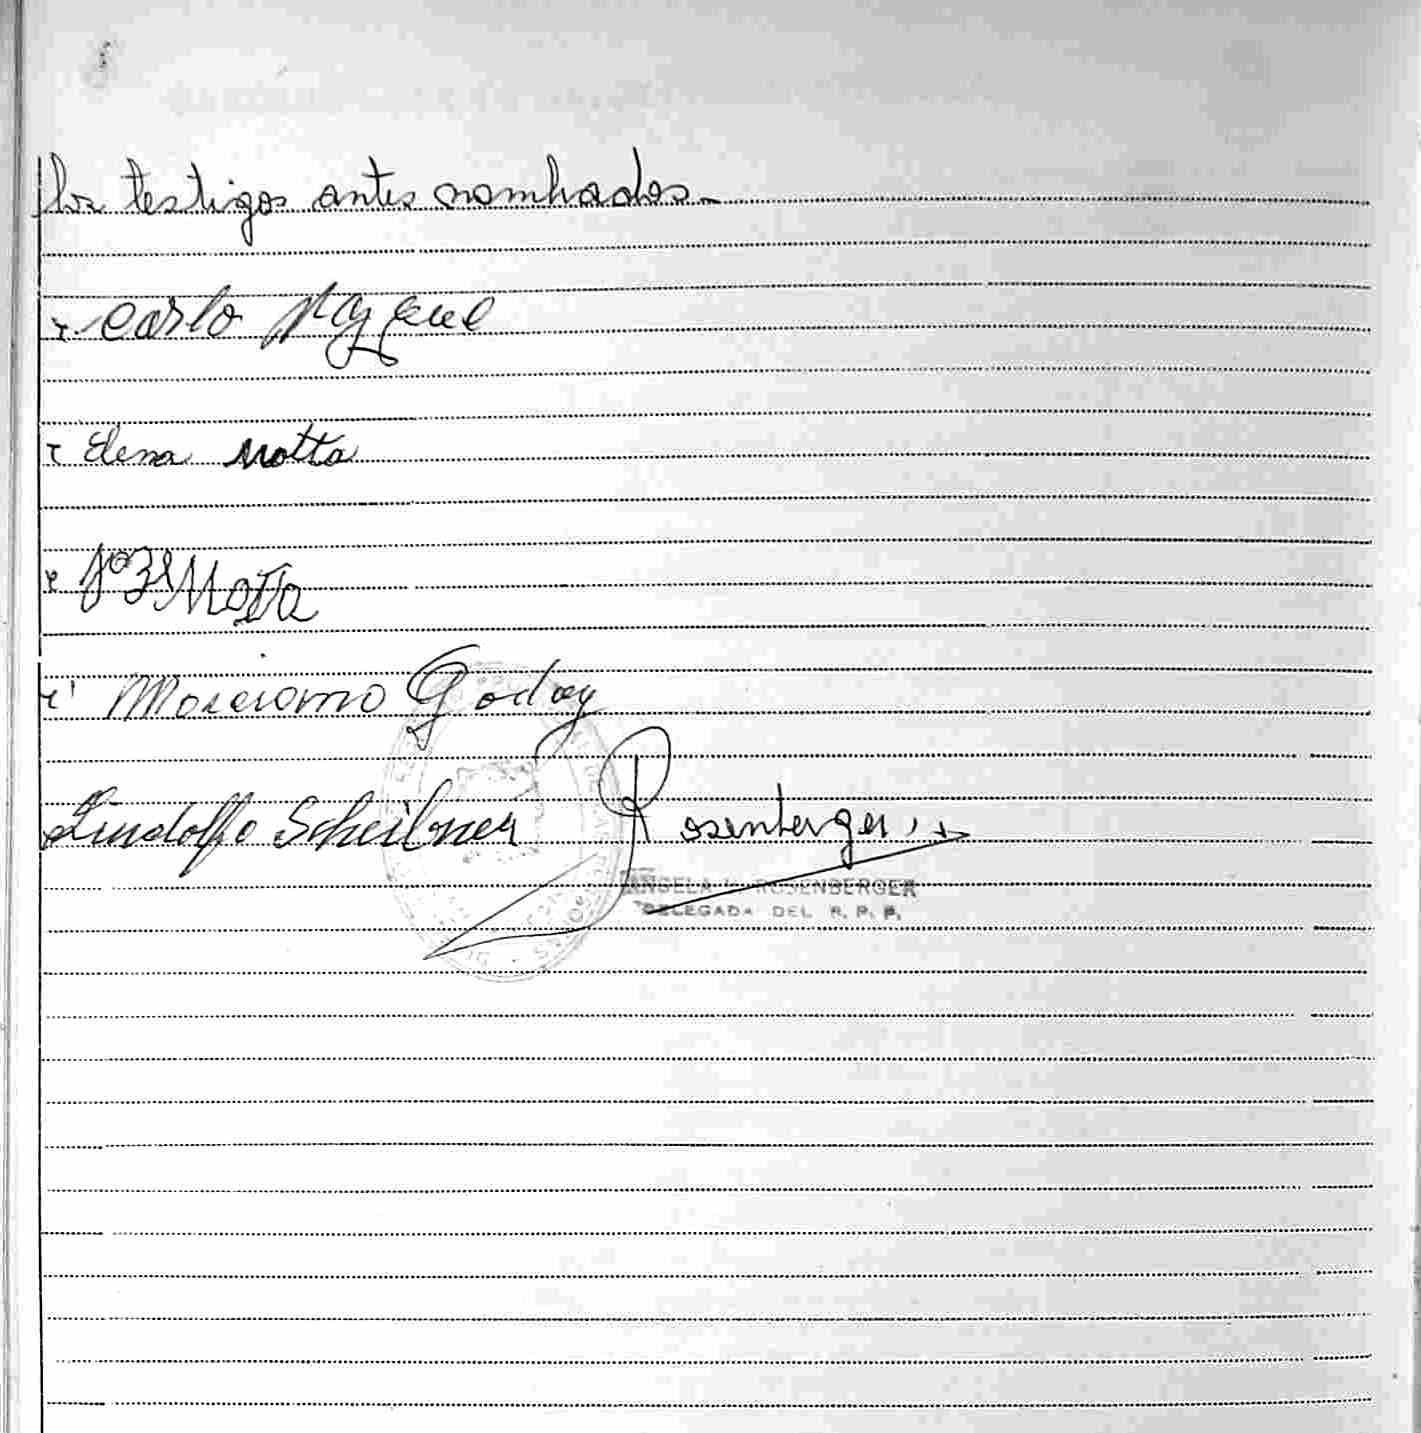 los testigos antes nombrados.-
Carlo
Elena Motta
José Motta
Marciano Godoy
Lindolfo Scheibner Rosenberger
ANGELA ROSENBERGER
DELEGADA DEL R. P. P.